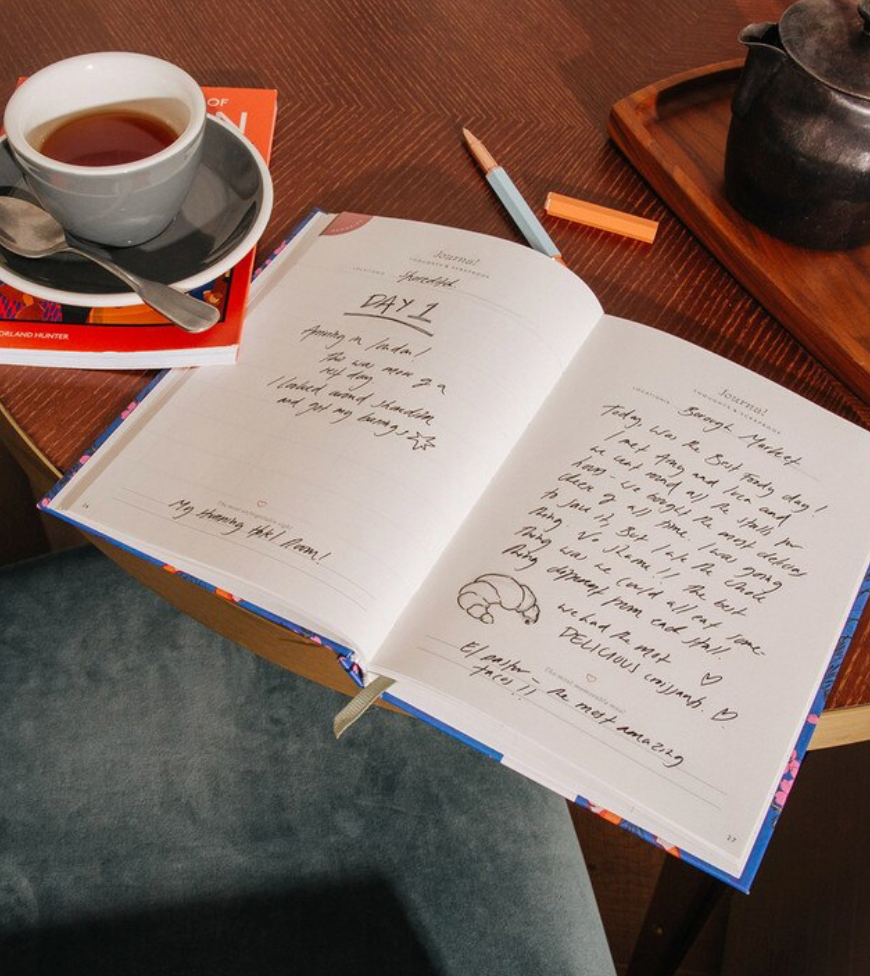 OF
N
ORLAND HUNTER
Journal
THOUGHTS & SCRAPBOOK
LOCATIONS Shoreditch
DAY 1
Arriving in London!
This was more of a
rest day
I looked around Shoreditch
and got my bearings
The most unforgettable sight
My Stunning Hotel Room!
26
Journal
THOUGHTS & SCRAPBOOK
LOCATIONS Borough Market
Today, was the Best Foody day!
I met Amy and Luca and
we went round all the stalls for
hours - we bought the most delicious
cheese of all time. I was going
to save it, But I ate the whole
thing. No Shame!! The best
thing was we could all eat some-
thing different from each stall.
we had the most
DELICIOUS croissants.
The most memorable meal
El pastor - the most amazing
tacos!!
27